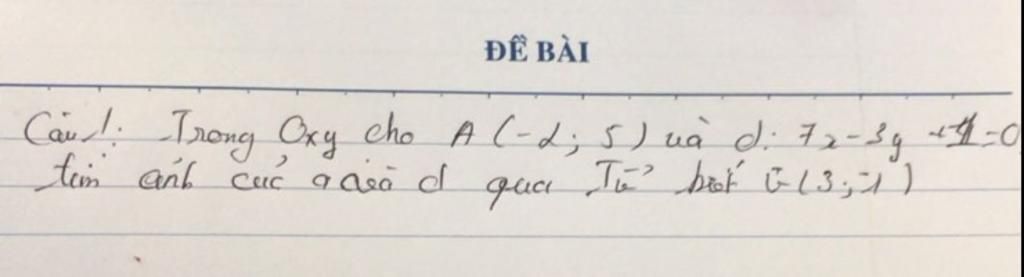 ĐỀ BÀI
Câu 1: Trong Oxy cho A(-2; 5) và d: 7x-3y + =0
tìm ảnh của A và d qua Tv biết v(3;-1)